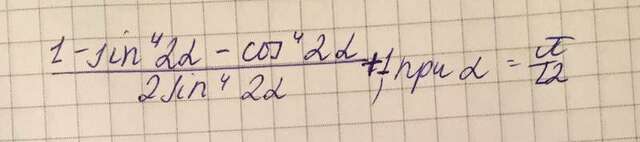 1 - sin⁴2α - cos⁴2α
2 sin⁴ 2α
+1, при α = π/12